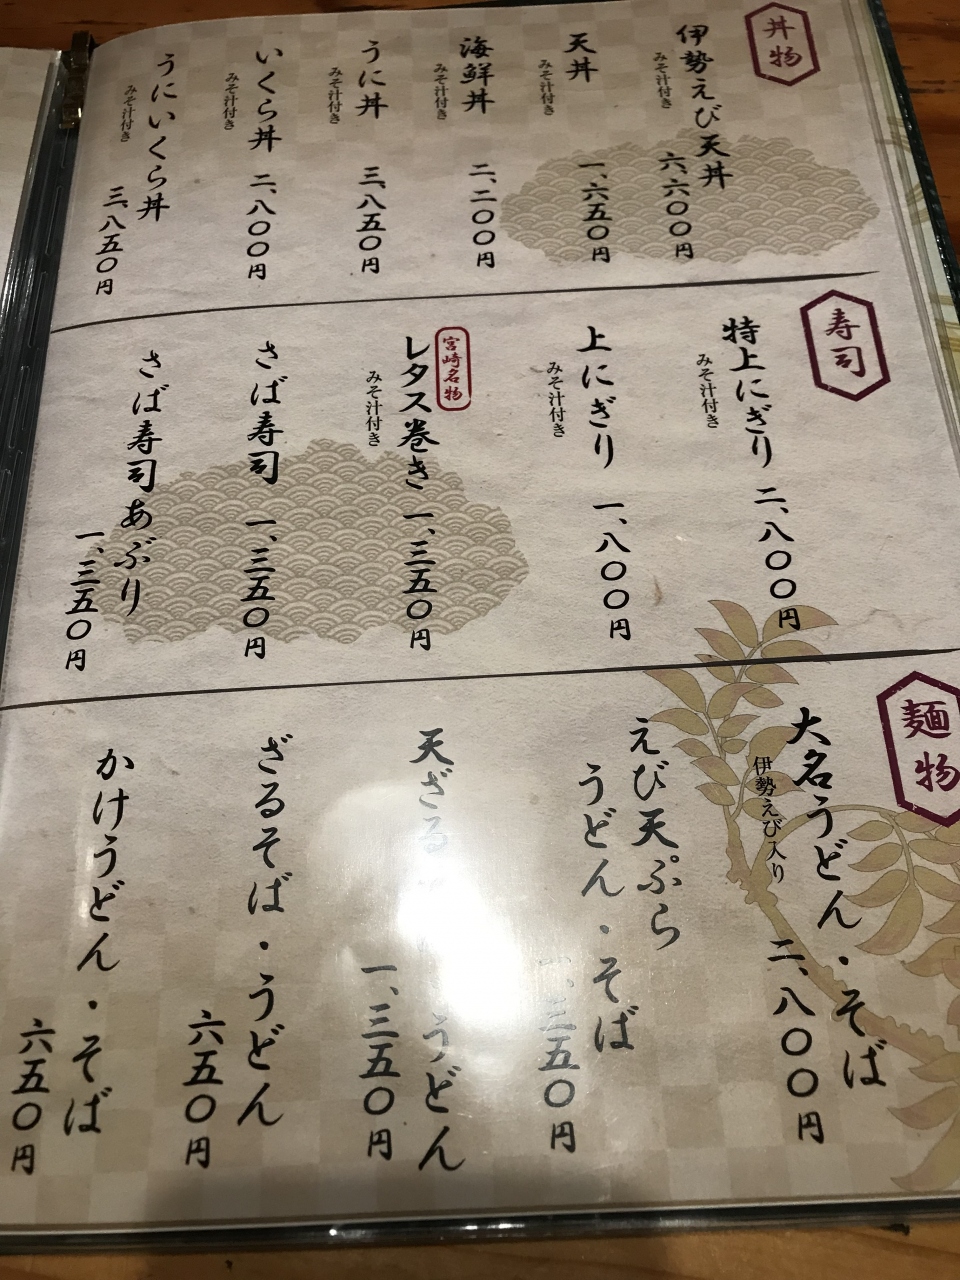 丼物
伊勢えび天丼
みそ汁付き
六、六〇〇円
天丼
みそ汁付き
一、六五〇円
海鮮丼
みそ汁付き
二、二〇〇円
うに丼
みそ汁付き
三、八五〇円
いくら丼
みそ汁付き
二、八〇〇円
うにいくら丼
みそ汁付き
三、八五〇円
寿司
特上にぎり 二、八〇〇円
みそ汁付き
上にぎり 一、八〇〇円
みそ汁付き
宮崎名物
レタス巻き 一、三五〇円
みそ汁付き
さば寿司 一、三五〇円
さば寿司あぶり
一、三五〇円
麺物
大名うどん・そば
伊勢えび入り
二、八〇〇円
えび天ぷら
うどん・そば
一、三五〇円
天ざる うどん
一、三五〇円
ざるそば・うどん
六五〇円
かけうどん・そば
六五〇円